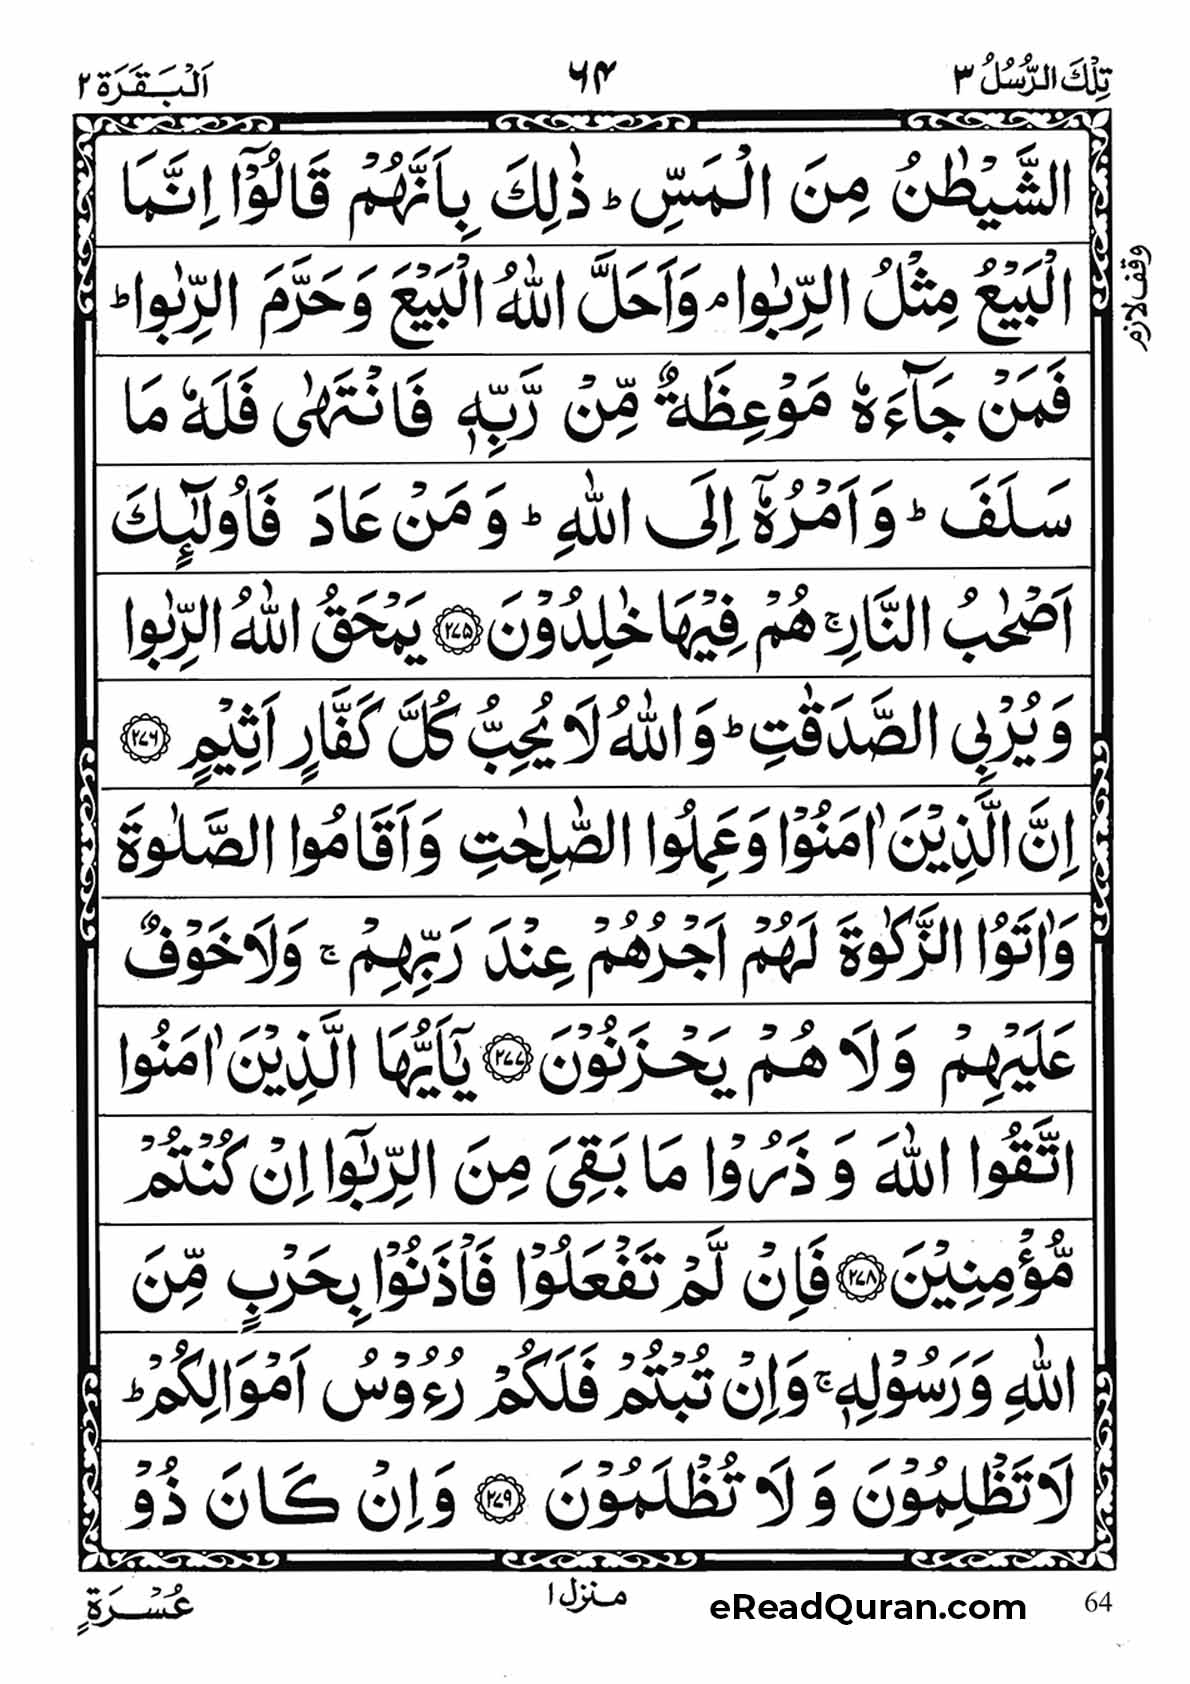 تِلْكَ الرُّسُلُ ٣
٦٤
اَلْبَقَرَة ٢
الشَّيْطٰنُ مِنَ الْمَسِّ ؕ ذٰلِكَ بِاَنَّهُمْ قَالُوْۤا اِنَّمَا
الْبَيْعُ مِثْلُ الرِّبٰوا ۘ وَاَحَلَّ اللّٰهُ الْبَيْعَ وَحَرَّمَ الرِّبٰوا ؕ
وقف لازم
فَمَنْ جَآءَهٗ مَوْعِظَةٌ مِّنْ رَّبِّهٖ فَانْتَهٰى فَلَهٗ مَا
سَلَفَ ؕ وَاَمْرُهٗۤ اِلَى اللّٰهِ ؕ وَمَنْ عَادَ فَاُولٰٓئِكَ
اَصْحٰبُ النَّارِ ۚ هُمْ فِيْهَا خٰلِدُوْنَ ﴿٢٧٥﴾ يَمْحَقُ اللّٰهُ الرِّبٰوا
وَيُرْبِى الصَّدَقٰتِ ؕ وَاللّٰهُ لَا يُحِبُّ كُلَّ كَفَّارٍ اَثِيْمٍ ﴿٢٧٦﴾
اِنَّ الَّذِيْنَ اٰمَنُوْا وَعَمِلُوا الصّٰلِحٰتِ وَاَقَامُوا الصَّلٰوةَ
وَاٰتَوُا الزَّكٰوةَ لَهُمْ اَجْرُهُمْ عِنْدَ رَبِّهِمْ ۚ وَلَا خَوْفٌ
عَلَيْهِمْ وَلَا هُمْ يَحْزَنُوْنَ ﴿٢٧٧﴾ يٰۤاَيُّهَا الَّذِيْنَ اٰمَنُوا
اتَّقُوا اللّٰهَ وَذَرُوْا مَا بَقِىَ مِنَ الرِّبٰۤوا اِنْ كُنْتُمْ
مُّؤْمِنِيْنَ ﴿٢٧٨﴾ فَاِنْ لَّمْ تَفْعَلُوْا فَاْذَنُوْا بِحَرْبٍ مِّنَ
اللّٰهِ وَرَسُوْلِهٖ ۚ وَاِنْ تُبْتُمْ فَلَكُمْ رُءُوْسُ اَمْوَالِكُمْ ؕ
لَا تَظْلِمُوْنَ وَلَا تُظْلَمُوْنَ ﴿٢٧٩﴾ وَاِنْ كَانَ ذُوْ
عُسْرَةٍ
منزل ١
eReadQuran.com
64